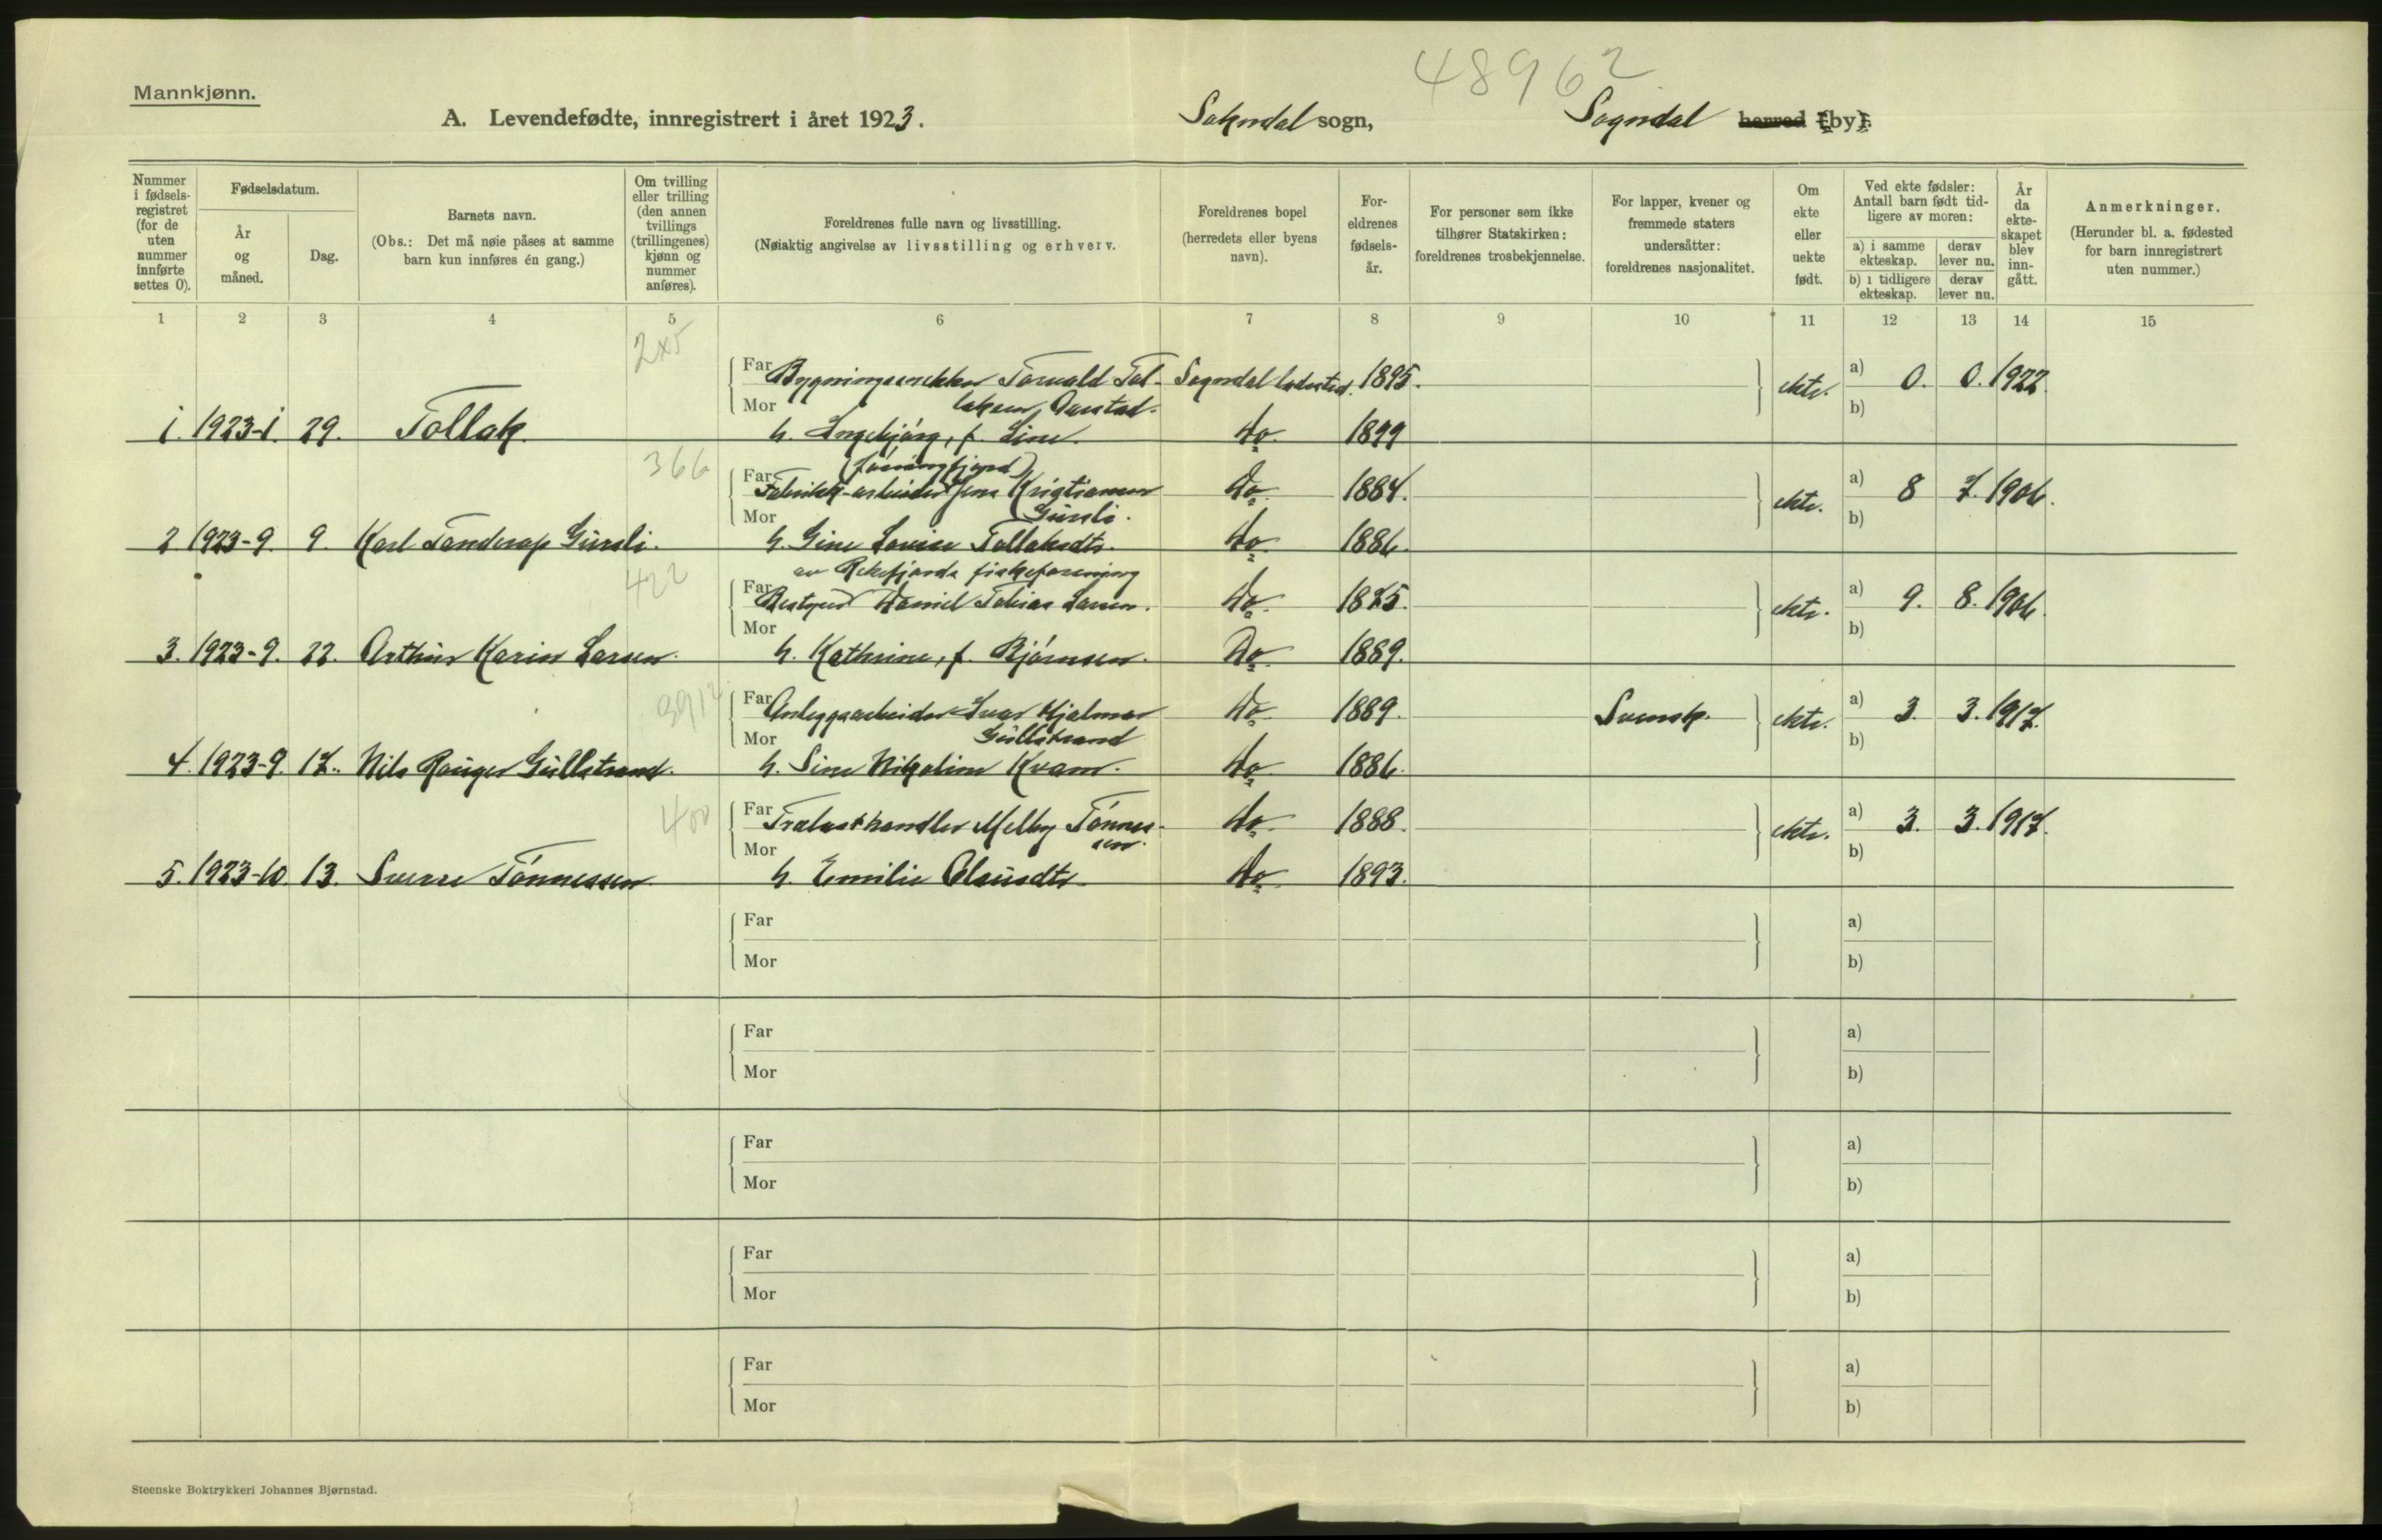 48962
Mannkjønn.
A. Levendefødte, innregistrert i året 1923.
Sokndal sogn,
Sogndal herred (by).
Nummer i fødsels-registret (for de uten nummer innførte settes 0).
Fødselsdatum.
År og måned.
Dag.
Barnets navn.
(Obs.: Det må nøie påses at samme barn kun innføres én gang.)
Om tvilling eller trilling (den annen tvillings (trillingenes) kjønn og nummer anføres).
Foreldrenes fulle navn og livsstilling.
(Nøiaktig angivelse av livsstilling og erhverv.
Foreldrenes bopel (herredets eller byens navn).
For-eldrenes fødsels-år.
For personer sem ikke tilhører Statskirken: foreldrenes trosbekjennelse.
For lapper, kvener og fremmede staters undersåtter: foreldrenes nasjonalitet.
Om ekte eller uekte født.
Ved ekte fødsler: Antall barn født tid-ligere av moren:
a) i samme ekteskap.
derav lever nu.
b) i tidligere ekteskap.
derav lever nu.
År da ekte-skapet blev inn-gått.
Anmerkninger.
(Herunder bl. a. fødested for barn innregistrert uten nummer.)
1 2 3 4 5 6 7 8 9 10 11 12 13 14 15
2x5
Far Bygningssnekker Torvald Tol- Sogndal ladested. 1895. ekte. a) 0. 0. 1922.
Mor laksen Aarstad. b)
1. 1923-1. 29. Tollak. h. Ingebjørg, f. Line. do. 1899
366
(Jøssingfjord)
Far Fabrikk-arbeider Jens Kristiansen do. 1884. ekte. a) 8 7. 1906.
Mor Gursli. b)
2. 1923-9. 9. Karl Tanderup Gursli. h. Gine Lovise Tollaksdtr. do. 1886.
422
av Rekefjords fiskeforening
Far Bestyrer Daniel Tobias Larsen. do. 1885. ekte. a) 9. 8. 1906.
Mor b)
3. 1923-9. 22. Arthur Karin Larsen. h. Kathrine, f. Bjørnsen. Do. 1889.
Far Anleggsarbeider Ivar Hjalmar do. 1889. Svensk. ekte. a) 3. 3. 1917.
Mor Gullstrand b)
4. 1923-9. 17. Nils Ranger Gullstrand. h. Sine Nikoline Kvam. do. 1886.
400
Far Trælasthandler Melby Tønnes- do. 1888. ekte. a) 3. 3. 1917.
Mor sen. b)
5. 1923-10. 13. Sverre Tønnessen. h. Emilie Olausdtr. do. 1893.
Far a)
Mor b)
Far a)
Mor b)
Far a)
Mor b)
Far a)
Mor b)
Far a)
Mor b)
Steenske Boktrykkeri Johannes Bjørnstad.